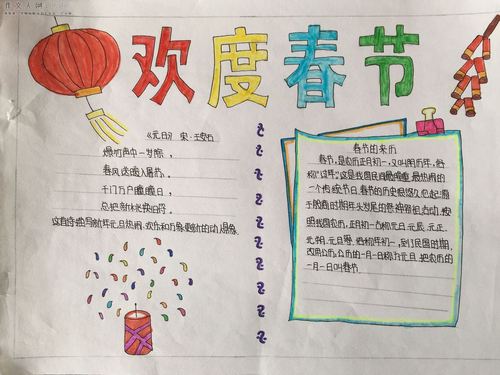 作文人网
欢度春节
《元日》 宋·王安石
爆竹声中一岁除，
春风送暖入屠苏。
千门万户曈曈日，
总把新桃换旧符。
这首诗描写新年元旦热闹、欢乐和万象更新的动人景象
春节的来历
春节，是农历正月初一，又叫阴历年，俗
称“过年”，这是我国民间最隆重、最热闹的
一个传统节日。春节的历史很悠久，它起源
于殷商时期年头岁尾的祭神祭祖活动，按
照我国农历，正月初一古称元日、元辰、元正、
元朔、元旦等，俗称年初一，到了民国时期，
改用公历，公历的一月一日称为元旦，把农历的
一月一日叫春节